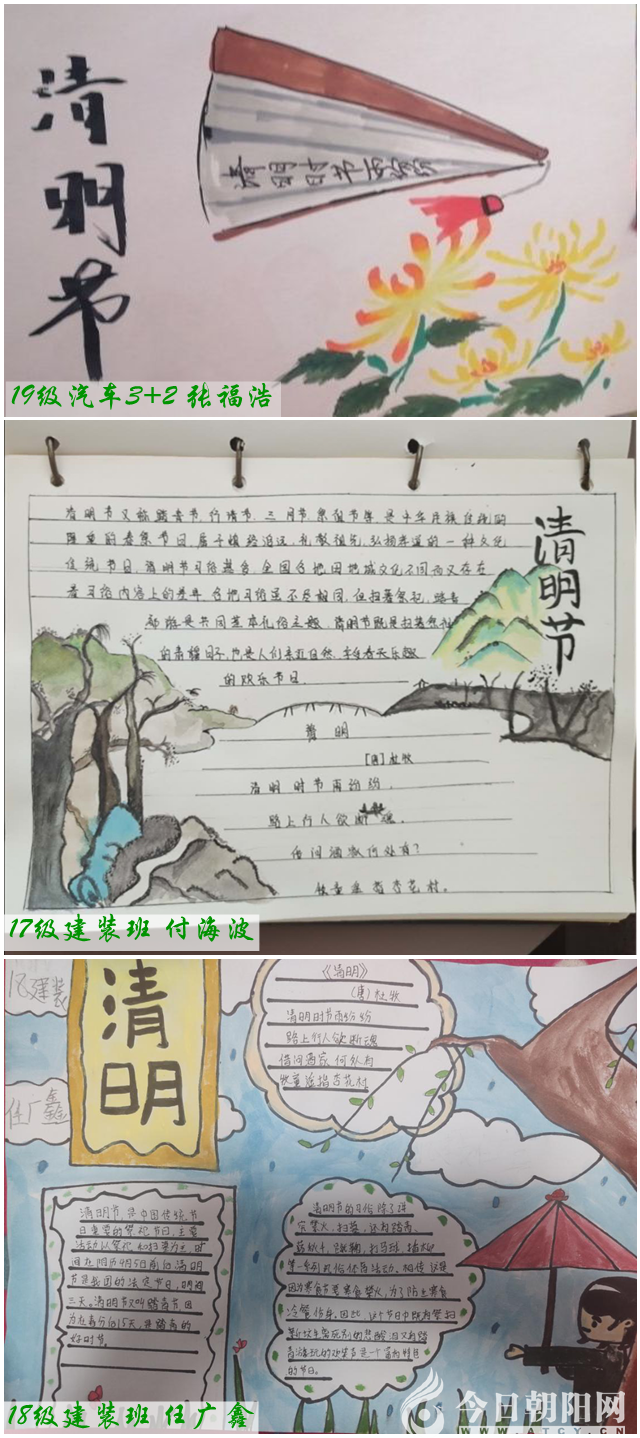 清明节
清明时节雨纷纷
19级汽车3+2 张福浩
清明节又称踏青节、行清节、三月节、祭祖节等,是中华民族传统的
隆重的春祭节日,属于慎终追远、礼敬祖先、弘扬孝道的一种文化
传统节日。清明节习俗
全国各地因地域文化不同而又存在
着习俗内容上的差异,各地习俗虽不尽相同,但扫墓祭祖、踏青
郊游是共同基本礼俗主题。清明节既是扫墓祭祖
的肃穆日子,也是人们亲近自然、
春天乐趣
的欢乐节日
清明节
清明
[唐]杜牧
清明时节雨纷纷,
路上行人欲断魂。
借问酒家何处有?
牧童
杏花村。
17级建装班 付海波
18建装
任广鑫
清明
《清明》
(唐)杜牧
清明时节雨纷纷
路上行人欲断魂
借问酒家何处有
牧童遥指杏花村
清明节,是中国传统节
日重要的祭祀节日,主要
活动以祭祀和扫墓为主,时
间在阳历4月5日前后清明
节是我国的法定节日,时间
三天。清明节又叫踏青节,因
为在春分后15天,是踏青的
好时节。
清明节的习俗除了讲
究禁火、扫墓,还有踏青、
荡秋千、蹴鞠、打马球、插柳
等一系列风俗体育活动。相传这是
因为寒食节要寒食禁火,为了防止寒食
冷餐伤身。因此,这个节日中既有祭扫
新坟生离死别的悲酸泪,又有踏
青游玩的欢笑声,是一个富有特色
的节日。
18级建装班 任广鑫
今日朝阳网
WWW.ATCY.CN